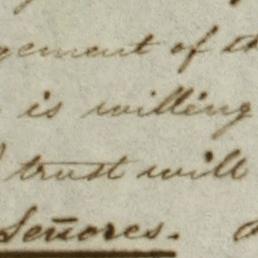 gement of th
is willing
trust will
Señores.